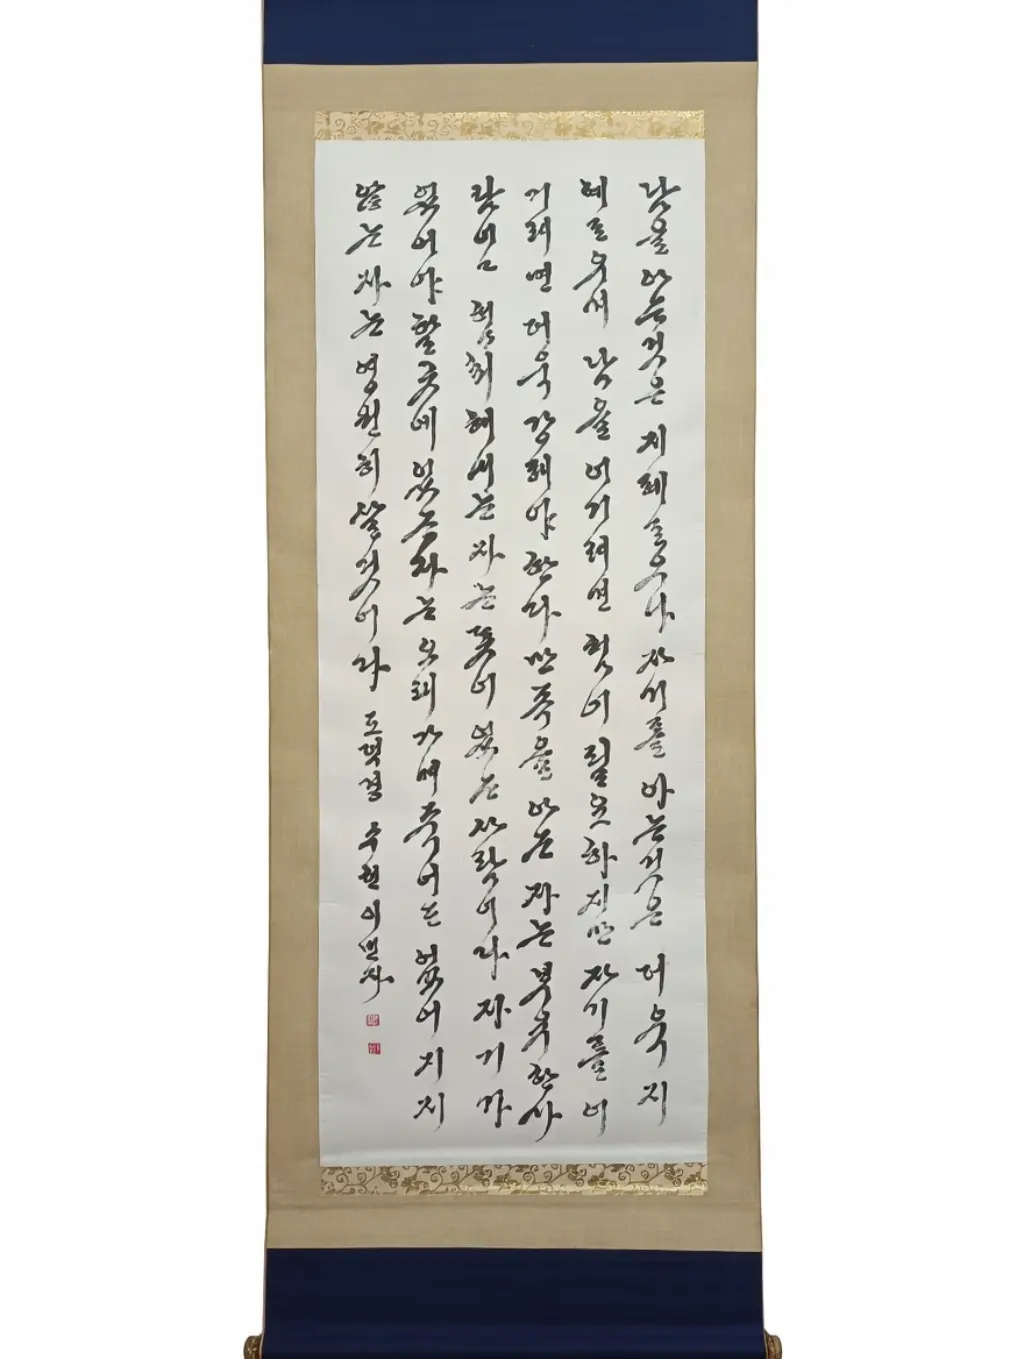 남을 아는것은 지혜로우나 자기를 아는것은 더욱 지
혜로우 남을 이기려면 힘이 필요하지만 자기를 이
기려면 더욱 강해야 한다 만족을 아는 자는 부유한사
람이 자는 뜻이 있는 사람이다 자기가
있어야 할곳에 있는자는 오래가며 죽어도 없어지지
않는 자는 영원히 살것이다 도덕경